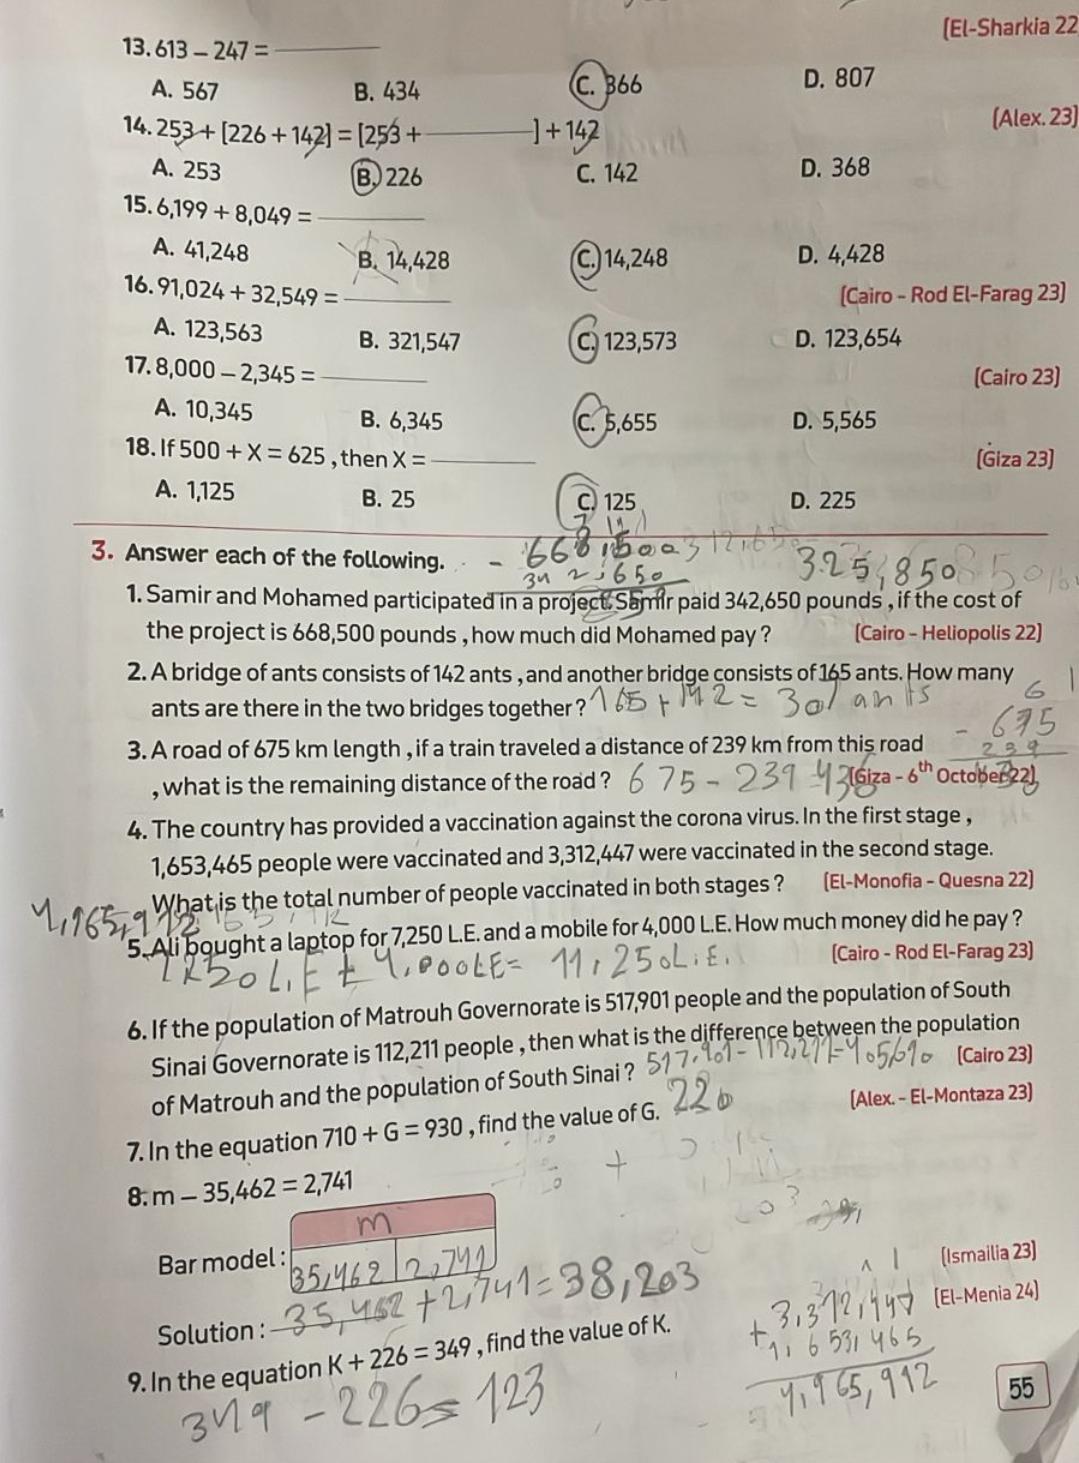 [El-Sharkia 22
13. 613 – 247 =
A. 567 B. 434 C. 366 D. 807
14. 253 + [226 + 142] = [253 + ] + 142 [Alex. 23]
A. 253 B. 226 C. 142 D. 368
15. 6,199 + 8,049 =
A. 41,248 B. 14,428 C. 14,248 D. 4,428
16. 91,024 + 32,549 = [Cairo - Rod El-Farag 23]
A. 123,563 B. 321,547 C. 123,573 D. 123,654
17. 8,000 – 2,345 = [Cairo 23]
A. 10,345 B. 6,345 C. 5,655 D. 5,565
18. If 500 + X = 625 , then X = [Giza 23]
A. 1,125 B. 25 C. 125 D. 225
3. Answer each of the following. - 668,500 325,850
342,650
1. Samir and Mohamed participated in a project. Samir paid 342,650 pounds , if the cost of
the project is 668,500 pounds , how much did Mohamed pay ? [Cairo - Heliopolis 22]
2. A bridge of ants consists of 142 ants , and another bridge consists of 165 ants. How many
ants are there in the two bridges together ? 165 + 142 = 307 ants
- 675
239
3. A road of 675 km length , if a train traveled a distance of 239 km from this road
, what is the remaining distance of the road ? 675 - 239 436 [Giza - 6th October 22]
4. The country has provided a vaccination against the corona virus. In the first stage ,
1,653,465 people were vaccinated and 3,312,447 were vaccinated in the second stage.
What is the total number of people vaccinated in both stages ? [El-Monofia - Quesna 22]
4,965,912
5. Ali bought a laptop for 7,250 L.E. and a mobile for 4,000 L.E. How much money did he pay ?
[Cairo - Rod El-Farag 23]
7250 L.E + 4,000LE = 11,250L.E.
6. If the population of Matrouh Governorate is 517,901 people and the population of South
Sinai Governorate is 112,211 people , then what is the difference between the population
of Matrouh and the population of South Sinai ? 517,901 - 112,211 = 405,690 [Cairo 23]
7. In the equation 710 + G = 930 , find the value of G. 220 [Alex. - El-Montaza 23]
8. m – 35,462 = 2,741
m
Bar model : 35,462 2,741 [Ismailia 23]
Solution : 35,462 + 2,741 = 38,203 [El-Menia 24]
9. In the equation K + 226 = 349 , find the value of K.
349 - 226 = 123
3,312,447
+ 1,653,465
4,965,912
55